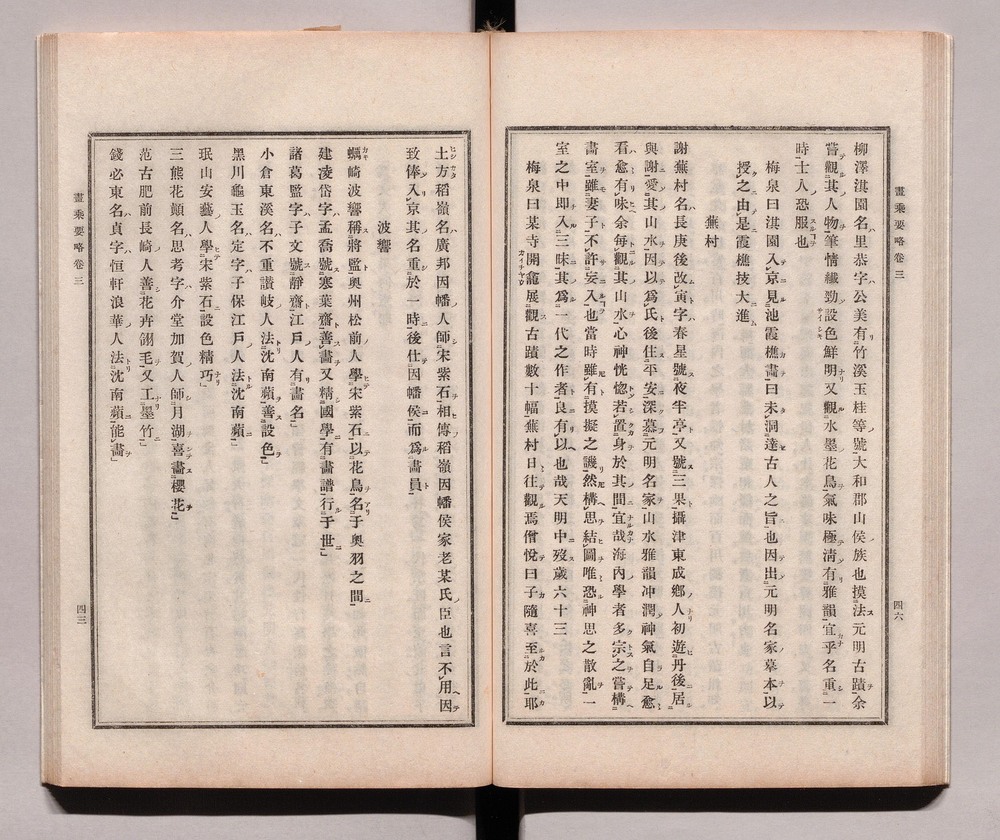 畫乘要略卷三
四六
柳澤淇園名里恭字公美有竹溪玉桂等號大和郡山侯族也摸法元明古蹟余
嘗觀其人物筆情纎勁設色鮮明又觀水墨花鳥氣味極淸有雅韻宜乎名重一
時士人恐服也
梅泉曰淇園入京見池霞樵畵曰未洞達古人之旨也因出元明名家摹本以
授之由是霞樵技大進
蕪村
謝蕪村名長庚後改寅字春星號夜半亭又號三果攝津東成鄕人初遊丹後居
與謝愛其山水因以爲氏後住平安深慕元明名家山水雅韻冲澗神氣自足愈
看愈有味余每觀其山水心神恍惚若置身於其間宜哉海內學者多宗之嘗構
畵室雖妻子不許妄入也當時雖有摸擬之譏然構思結圖唯恐神思之散亂一
室之中卽入三昧其爲一代之作者良有以也哉天明中歿歲六十三
梅泉曰某寺開龕展觀古蹟數十幅蕪村日往觀焉僧悅曰子隨喜至於此耶
土方稻嶺名廣邦因幡人師宋紫石相傳稻嶺因幡侯家老某氏臣也言不用因
致俸入京其名重於一時後仕因幡侯而爲畵員
波響
蠣崎波響稱將監奥州松前人學宋紫石以花鳥名于奥羽之間
建凌岱字孟喬號寒葉齋善畵又精國學有畵譜行于世
諸葛監字子文號靜齋江戸人有畵名
小倉東溪名不重讃岐人法沈南蘋善設色
黑川龜玉名定字子保江戸人法沈南蘋
珉山安藝人學宋紫石設色精巧
三熊花顚名思考字介堂加賀人師月湖喜畵櫻花
范古肥前長崎人善花卉翎毛又工墨竹
錢必東名貞字恒軒浪華人法沈南蘋能畵
畫乘要略卷三
四三